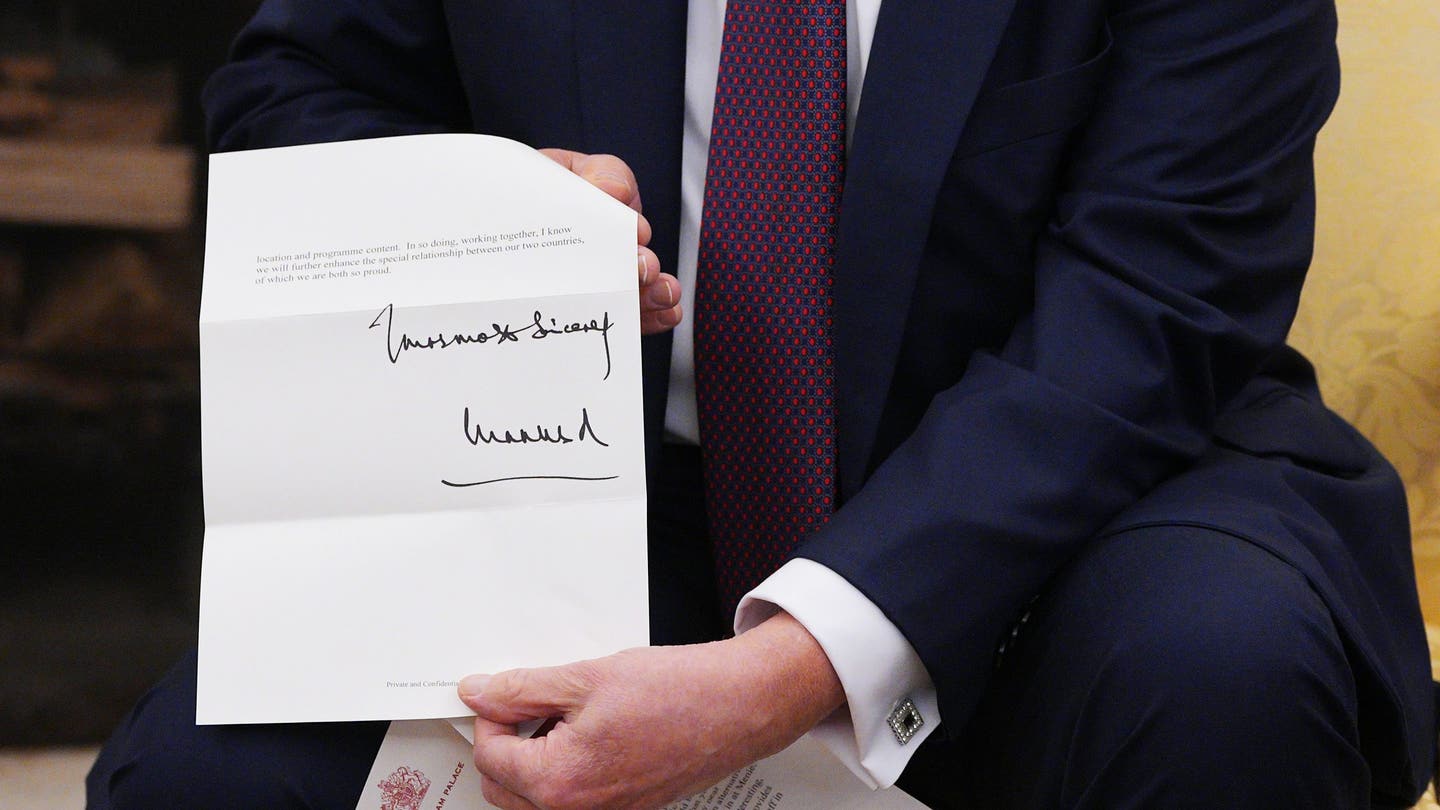 location and programme content. In so doing, working together, I know
we will further enhance the special relationship between our two countries,
of which we are both so proud.
Yours most sincerely
Charles R
Private and Confidentia
AM PALACE
alternati
n at Menie,
resting,
ovides
ff in